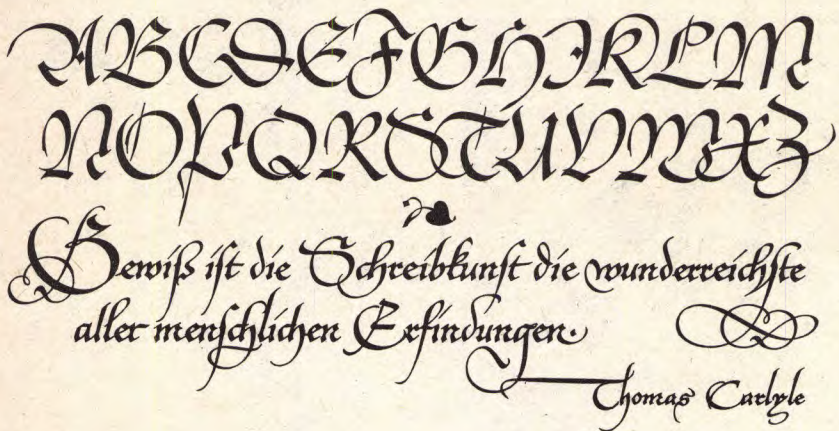 ABCDEFGHIKLM
NOPQRSTUVWXZ
Gewiß iſt die Schreibkunſt die wunderreichſte
aller menſchlichen Erfindungen.
Thomas Carlyle